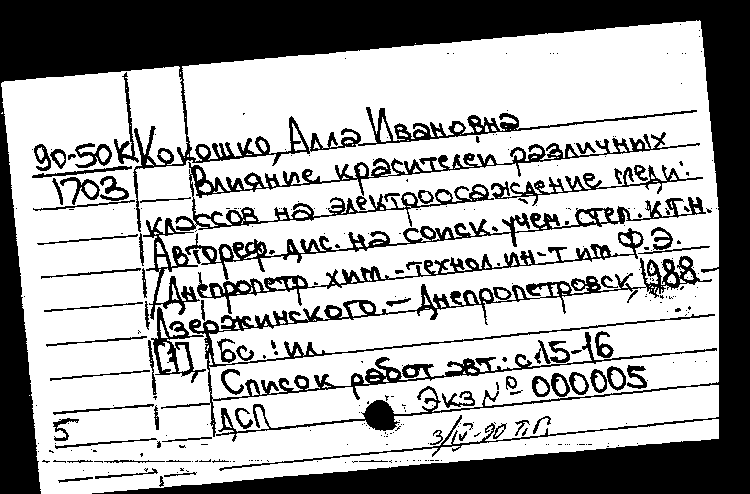 90-50К Кокошко, Алла Ивановна
1703 Влияние красителей различных
классов на электроосаждение меди:
Автореф. дис. на соиск. учен. степ. к.т.н.
/Днепропетр. хим.-технол. ин-т им. Ф.Э.
Дзержинского.— Днепропетровск, 1988.—
[1], 16с.: ил.
Список работ авт.: с.15-16
ДСП Экз № 000005
5
3/IV-90 Т.П.